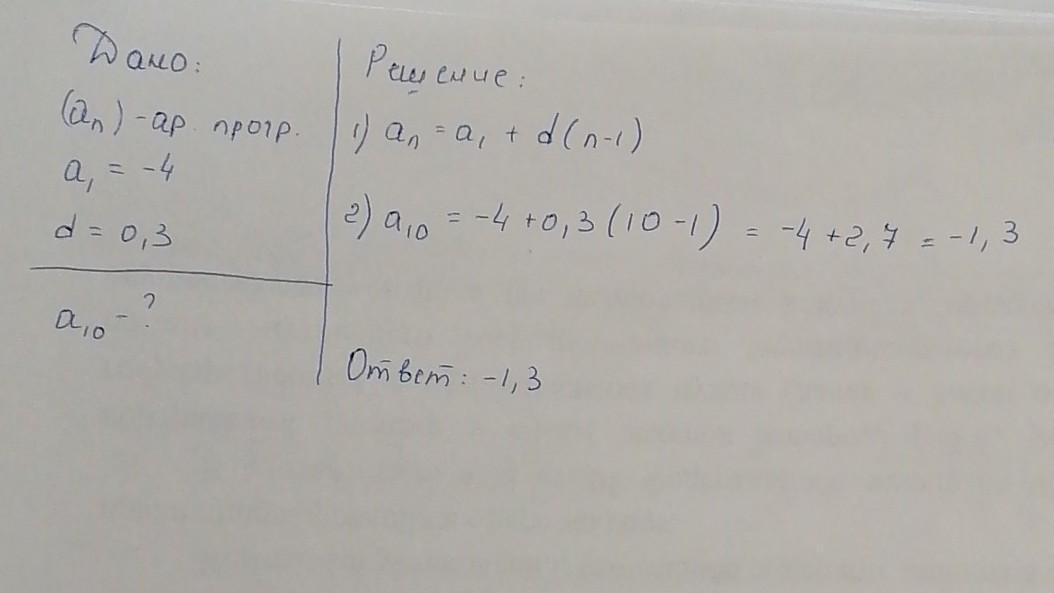 Дано:
(aₙ) - ар. прогр.
a₁ = -4
d = 0,3
a₁₀ - ?
Решение:
1) aₙ = a₁ + d(n-1)
2) a₁₀ = -4 + 0,3(10-1) = -4 + 2,7 = -1,3
Ответ: -1,3